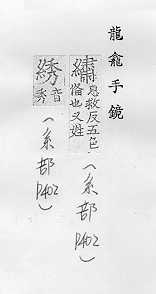 龍龕手鏡
繡息救反五色
俻也又姓
(糸部
P402)
綉音
秀
(糸部
P402)